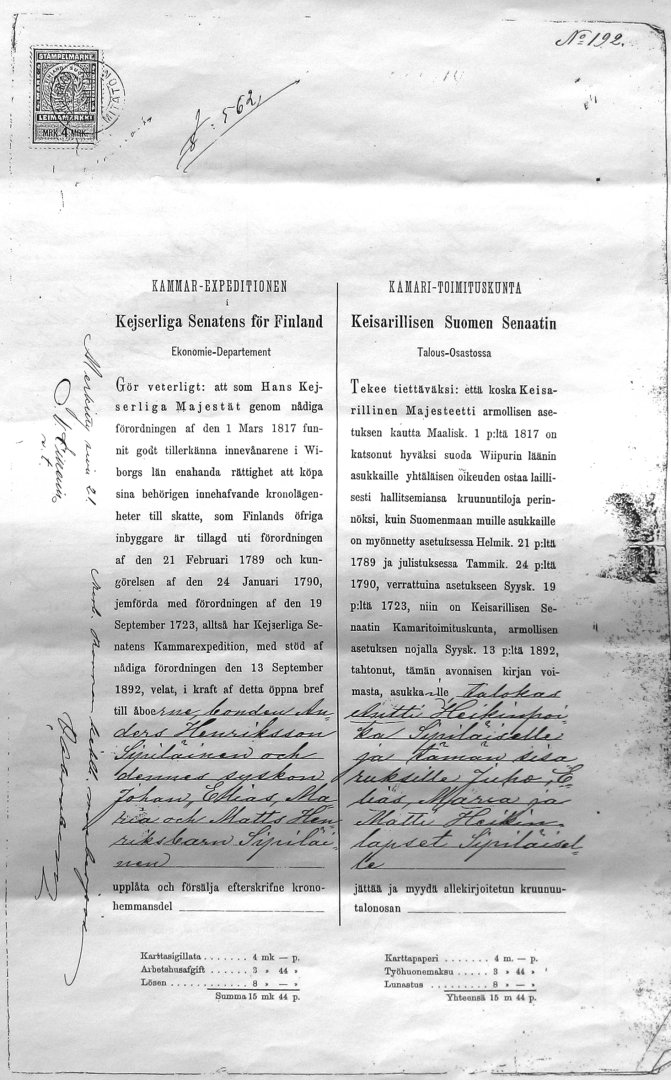 No 192.
STÄMPELMÄRKE
LEIMAMERKKI
MRK. 4 MRK.
562
KAMMAR-EXPEDITIONEN
i
Kejserliga Senatens för Finland
Ekonomie-Departement
Gör veterligt: att som Hans Kej-
serliga Majestät genom nådiga
förordningen af den 1 Mars 1817 fun-
nit godt tillerkänna innevånarene i Wi-
borgs län enahanda rättighet att köpa
sina behörigen innehafvande kronolägen-
heter till skatte, som Finlands öfriga
inbyggare är tillagd uti förordningen
af den 21 Februari 1789 och kun-
görelsen af den 24 Januari 1790,
jemförda med förordningen af den 19
September 1723, alltså har Kejserliga Se-
natens Kammarexpedition, med stöd af
nådiga förordningen den 13 September
1892, velat, i kraft af detta öppna bref
till åboerne, bonden An-
ders Henriksson
Sipiläinen och
dennes syskon
Johan, Elias, Ma-
ria och Matts Hen-
riksbarn Sipiläi-
nen
upplåta och försälja efterskrifne krono-
hemmansdel
Karttasigillata . . . . . . . 4 mk — p.
Arbetshusafgift . . . . . . 3 » 44 »
Lösen . . . . . . . . . . . . 8 » — »
Summa 15 mk 44 p.
KAMARI-TOIMITUSKUNTA
Keisarillisen Suomen Senaatin
Talous-Osastossa
Tekee tiettäväksi: että koska Keisa-
rillinen Majesteetti armollisen ase-
tuksen kautta Maalisk. 1 p:ltä 1817 on
katsonut hyväksi suoda Wiipurin läänin
asukkaille yhtäläisen oikeuden ostaa lailli-
sesti hallitsemiansa kruununtiloja perin-
nöksi, kuin Suomenmaan muille asukkaille
on myönnetty asetuksessa Helmik. 21 p:ltä
1789 ja julistuksessa Tammik. 24 p:ltä
1790, verrattuina asetukseen Syysk. 19
p:ltä 1723, niin on Keisarillisen Se-
naatin Kamaritoimituskunta, armollisen
asetuksen nojalla Syysk. 13 p:ltä 1892,
tahtonut, tämän avonaisen kirjan voi-
masta, asukkaille, talokas
Antti Heikinpoi-
ka Sipiläiselle
ja tämän sisa
ruksille Juho, E-
lias, Maria ja
Matti Heikin-
lapset Sipiläisel-
le
jättää ja myydä allekirjoitetun kruunun-
talonosan
Karttapaperi . . . . . . . 4 m. — p.
Työhuonemaksu . . . . . 3 » 44 »
Lunastus . . . . . . . . . 8 » — »
Yhteensä 15 m 44 p.